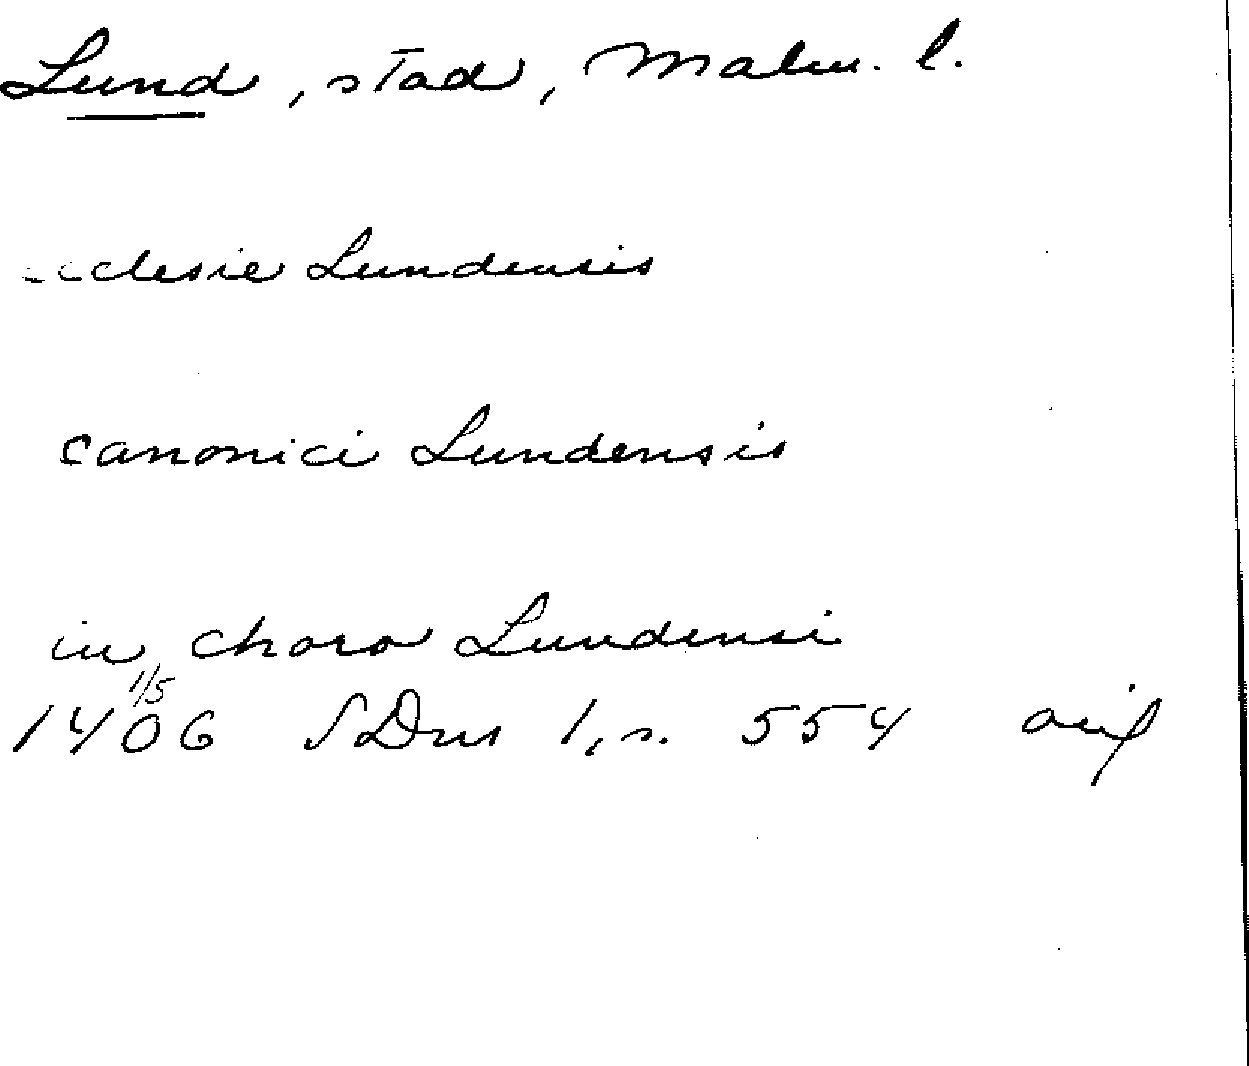 Lund, stad, Malm. l.
ecclesie Lundensis
canonici Lundensis
in choro Lundensi
1/5
1406 SDns 1, s. 554 orig